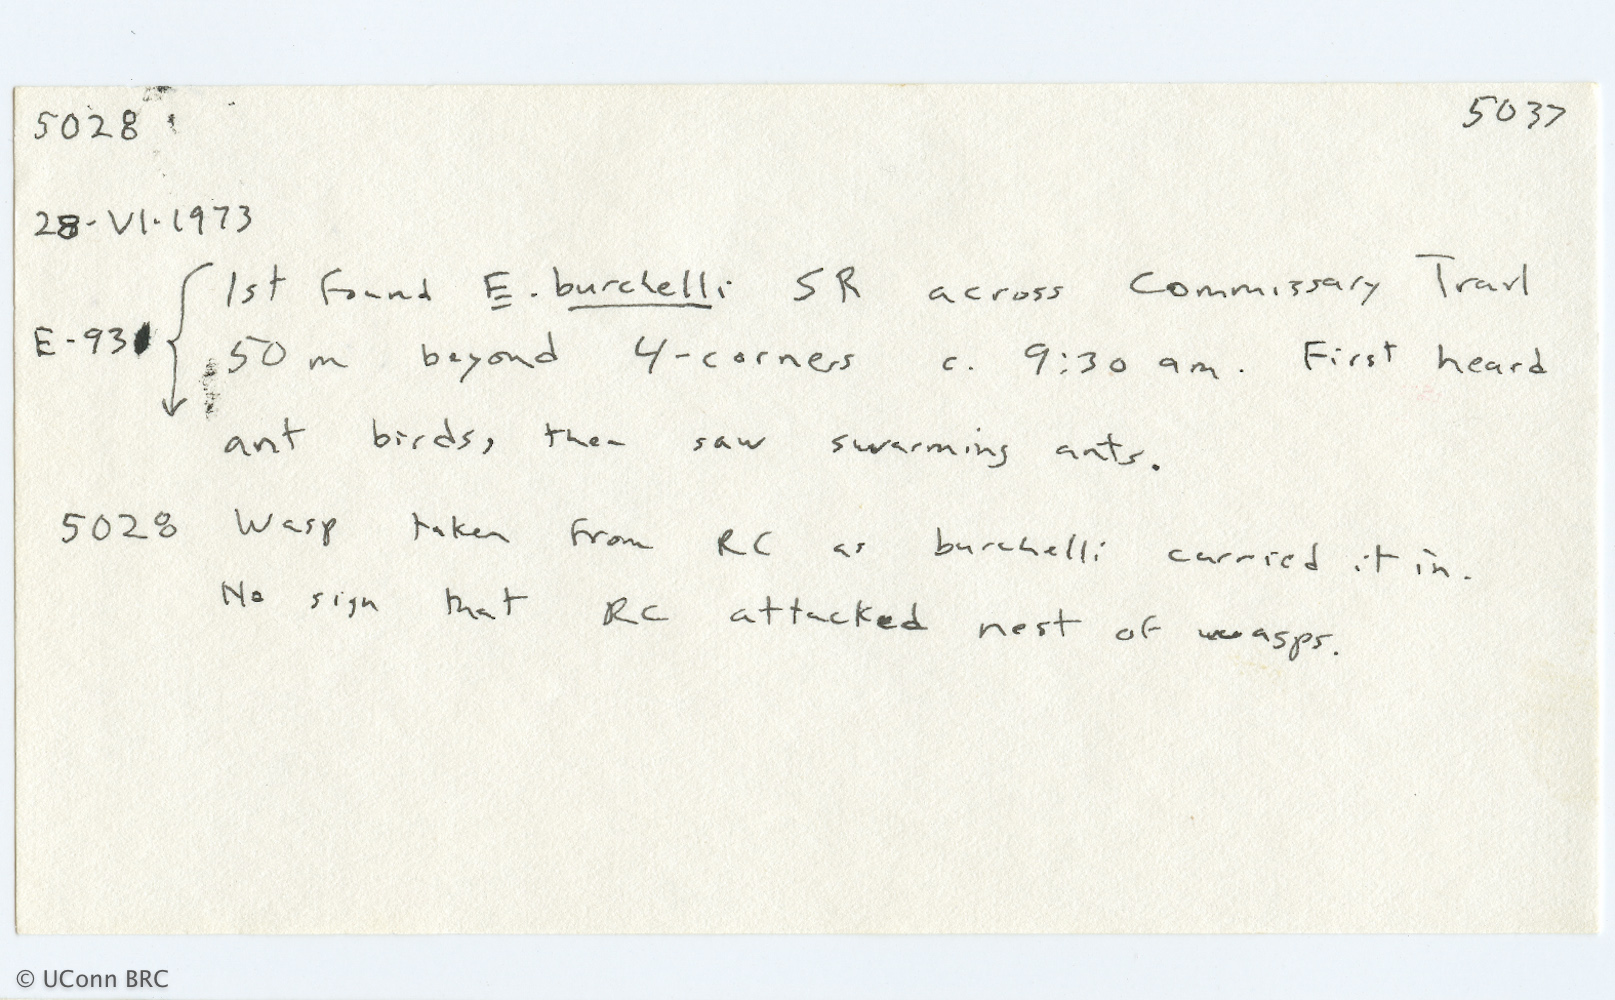 5028 5037
28-VI-1973
1st found E. burchelli SR across Commissary Trail
E-93 50 m beyond 4-corners c. 9:30 am. First heard
ant birds, then saw swarming ants.
5028 Wasp taken from RC as burchelli carried it in.
No sign that RC attacked nest of wasps.
© UConn BRC